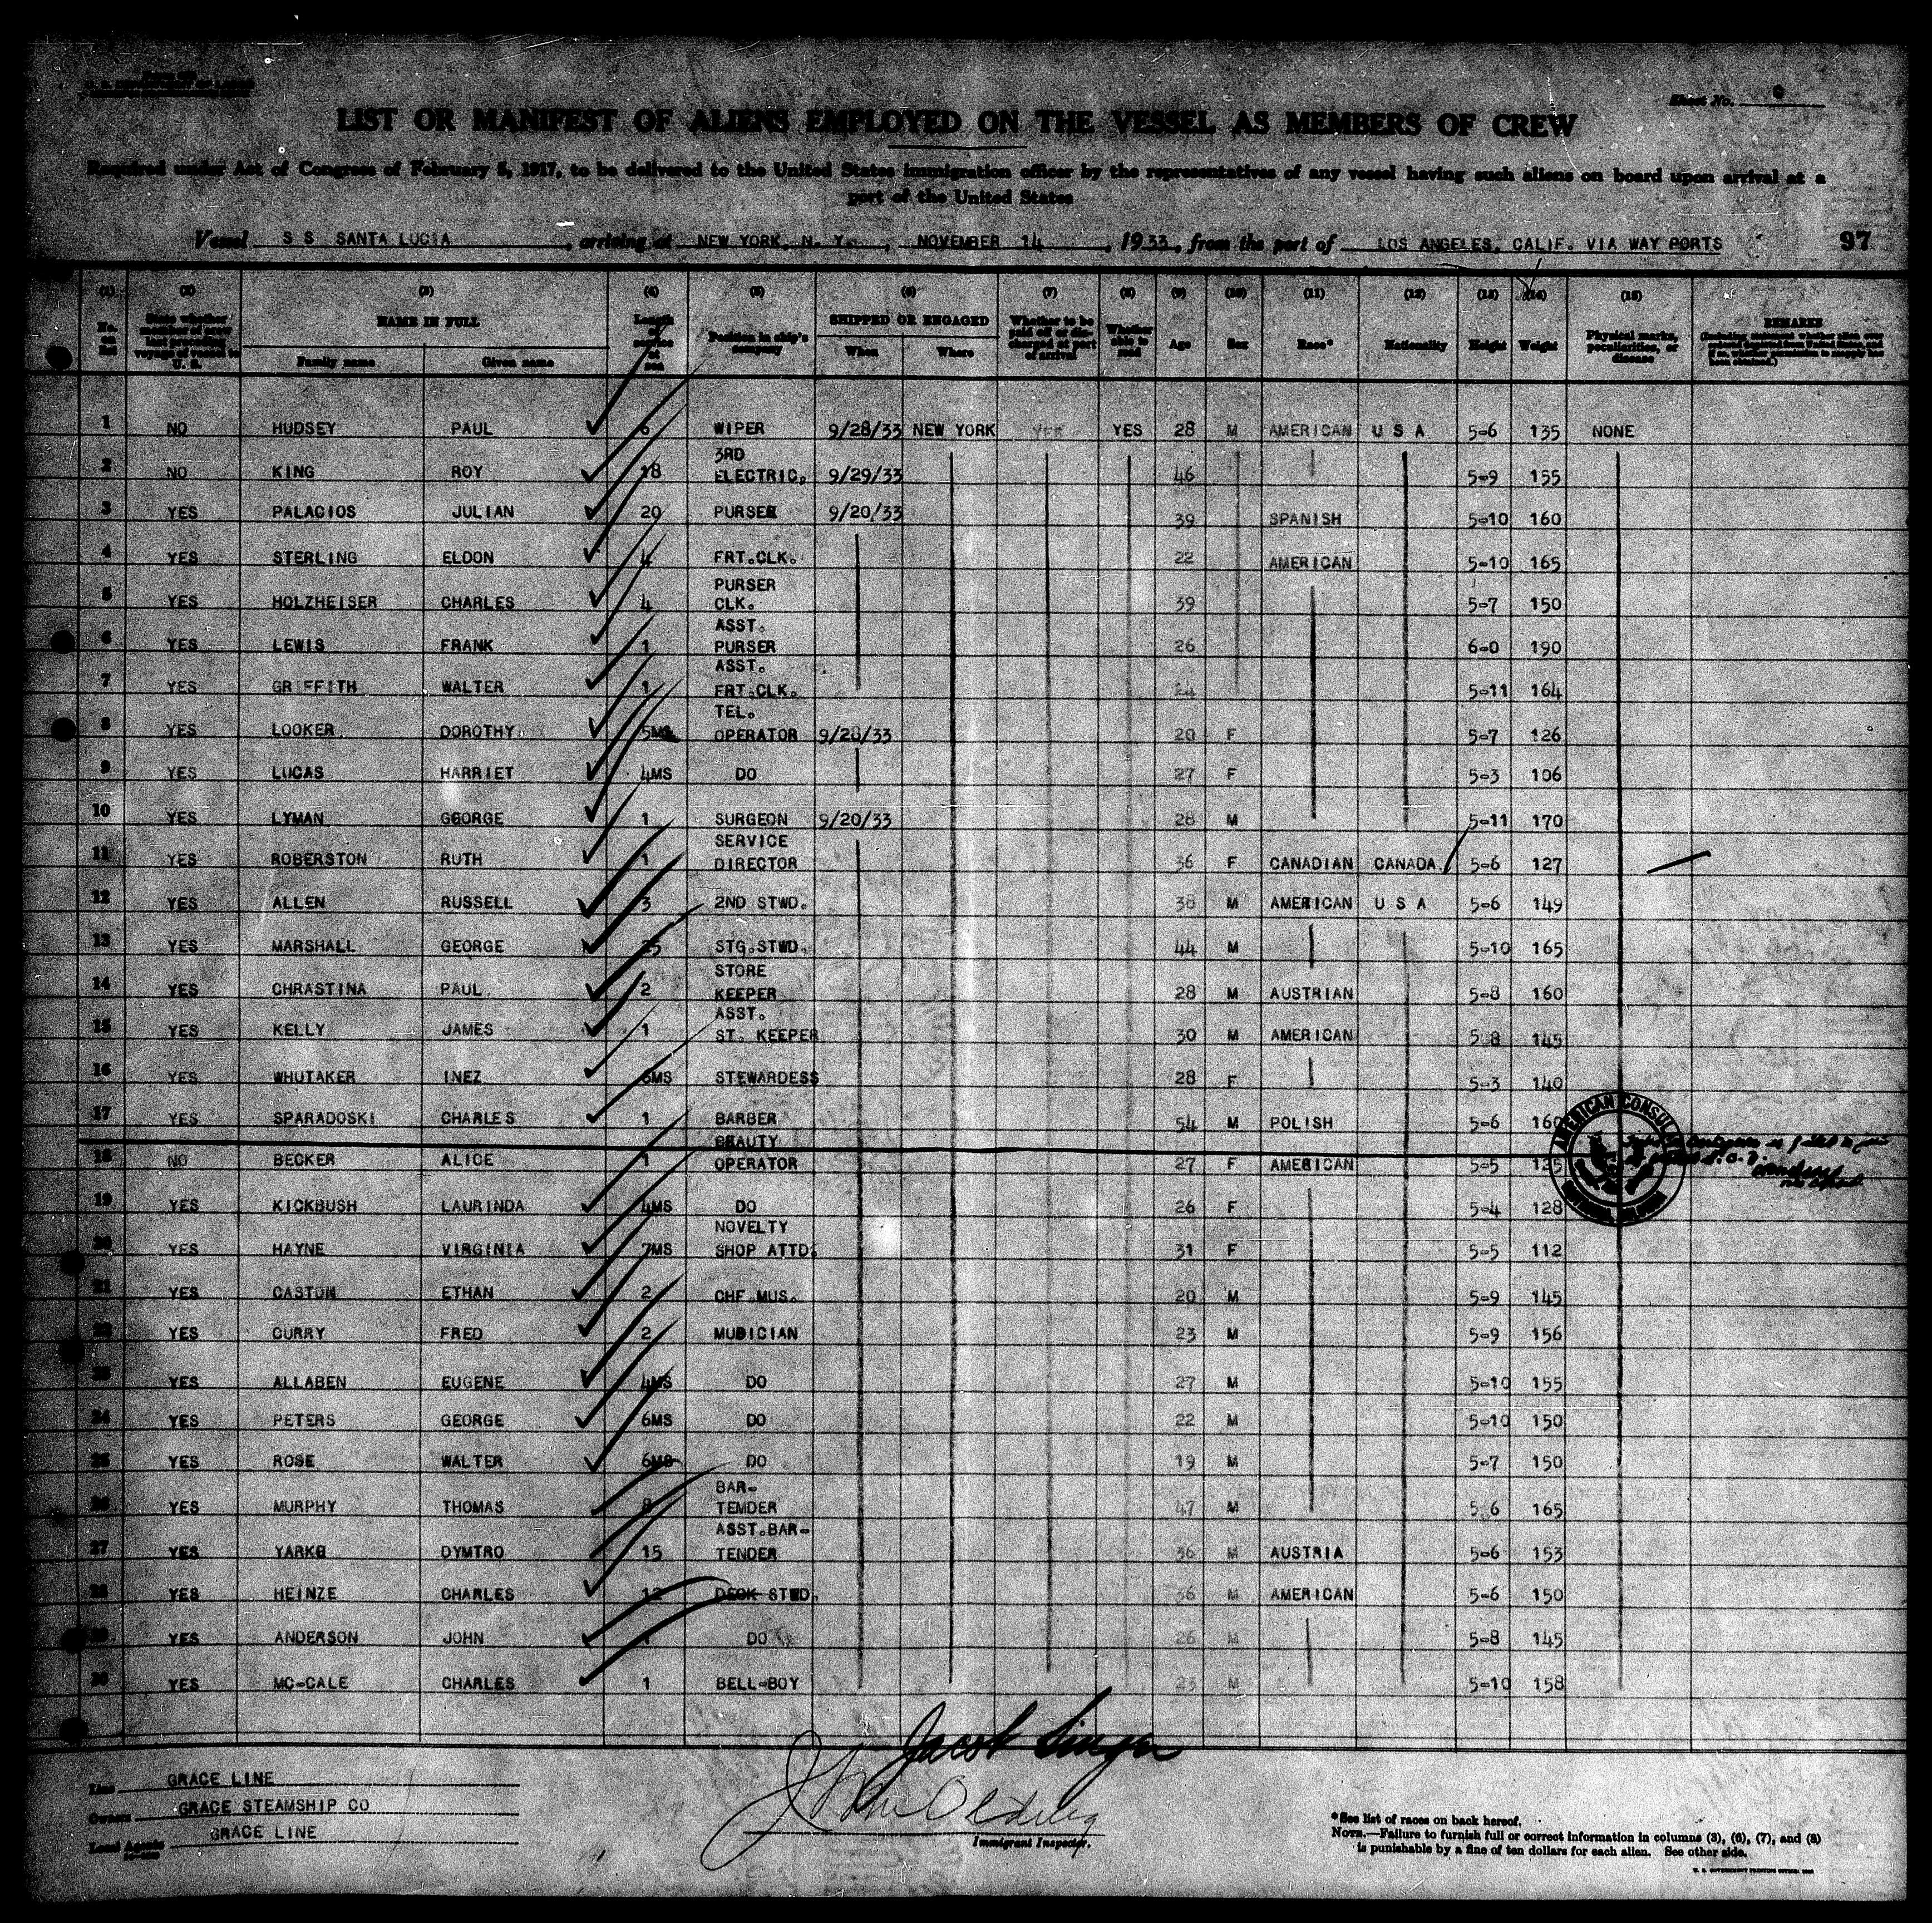 Sheet No.
LIST OR MANIFEST OF ALIENS EMPLOYED ON THE VESSEL AS MEMBERS OF CREW
Required under Act of Congress of February 5, 1917, to be delivered to the United States immigration officer by the representatives of any vessel having such aliens on board upon arrival at a
port of the United States
Vessel S S SANTA LUCIA, arriving at NEW YORK, N. Y., NOVEMBER 14, 1933, from the port of LOS ANGELES, CALIF. VIA WAY PORTS 97
(1) (2) (3) (4) (5) (6) (7) (8) (9) (10) (11) (12) (13) (14) (15)
No. on list State whether member of crew last preceding voyage of vessel to U. S. NAME IN FULL Length of service at sea Position in ship's company SHIPPED OR ENGAGED Whether to be paid off or discharged at port of arrival Whether able to read Age Sex Race* Nationality Height Weight Physical marks, peculiarities, or disease REMARKS
Family name Given name When Where
1 NO HUDSEY PAUL 6 WIPER 9/28/33 NEW YORK YES YES 28 M AMERICAN U S A 5-6 135 NONE
2 NO KING ROY 18 3RD ELECTRIC. 9/29/33 46 5-9 155
3 YES PALACIOS JULIAN 20 PURSER 9/20/33 39 SPANISH 5-10 160
4 YES STERLING ELDON 4 FRT.CLK. 22 AMERICAN 5-10 165
5 YES HOLZHEISER CHARLES 4 PURSER CLK. 39 5-7 150
6 YES LEWIS FRANK 1 ASST. PURSER 26 6-0 190
7 YES GRIFFITH WALTER 1 ASST. FRT.CLK. 24 5-11 164
8 YES LOOKER DOROTHY 5MS TEL. OPERATOR 9/28/33 20 F 5-7 126
9 YES LUCAS HARRIET 4MS DO 27 F 5-3 106
10 YES LYMAN GEORGE 1 SURGEON 9/20/33 28 M 5-11 170
11 YES ROBERSTON RUTH 1 SERVICE DIRECTOR 36 F CANADIAN CANADA 5-6 127
12 YES ALLEN RUSSELL 3 2ND STWD. 38 M AMERICAN U S A 5-6 149
13 YES MARSHALL GEORGE 25 STG.STWD. 44 M 5-10 165
14 YES CHRASTINA PAUL 2 STORE KEEPER 28 M AUSTRIAN 5-8 160
15 YES KELLY JAMES 1 ASST. ST. KEEPER 30 M AMERICAN 5 8 145
16 YES WHUTAKER INEZ 6MS STEWARDESS 28 F 5-3 140
17 YES SPARADOSKI CHARLES 1 BARBER 54 M POLISH 5-6 160
18 NO BECKER ALICE 1 BEAUTY OPERATOR 27 F AMERICAN 5-5 125
AMERICAN CONSUL
19 YES KICKBUSH LAURINDA 4MS DO 26 F 5-4 128
20 YES HAYNE VIRGINIA 7MS NOVELTY SHOP ATTD. 31 F 5-5 112
21 YES CASTON ETHAN 2 CHF.MUS. 20 M 5-9 145
22 YES CURRY FRED 2 MUDICIAN 23 M 5-9 156
23 YES ALLABEN EUGENE 4MS DO 27 M 5-10 155
24 YES PETERS GEORGE 6MS DO 22 M 5-10 150
25 YES ROSE WALTER 6MS DO 19 M 5-7 150
26 YES MURPHY THOMAS 8 BAR- TEMDER 47 M 5 6 165
27 YES YARKO DYMTRO 15 ASST.BAR- TENDER 36 M AUSTRIA 5-6 153
28 YES HEINZE CHARLES 12 DECK STWD. 36 M AMERICAN 5-6 150
29 YES ANDERSON JOHN 1 DO 26 M 5-8 145
30 YES MC-CALE CHARLES 1 BELL-BOY 23 M 5-10 158
Jacob Singer
Line GRACE LINE
Owners GRACE STEAMSHIP CO
Local Agents GRACE LINE
Immigrant Inspector.
*See list of races on back hereof.
NOTE.—Failure to furnish full or correct information in columns (3), (6), (7), and (8)
is punishable by a fine of ten dollars for each alien. See other side.